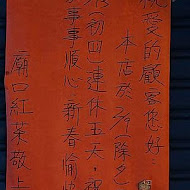 親愛的顧客您好
本店於2/8(除夕)
初四)連休五天,祝
事事順心 新春愉快
廟口紅茶敬上